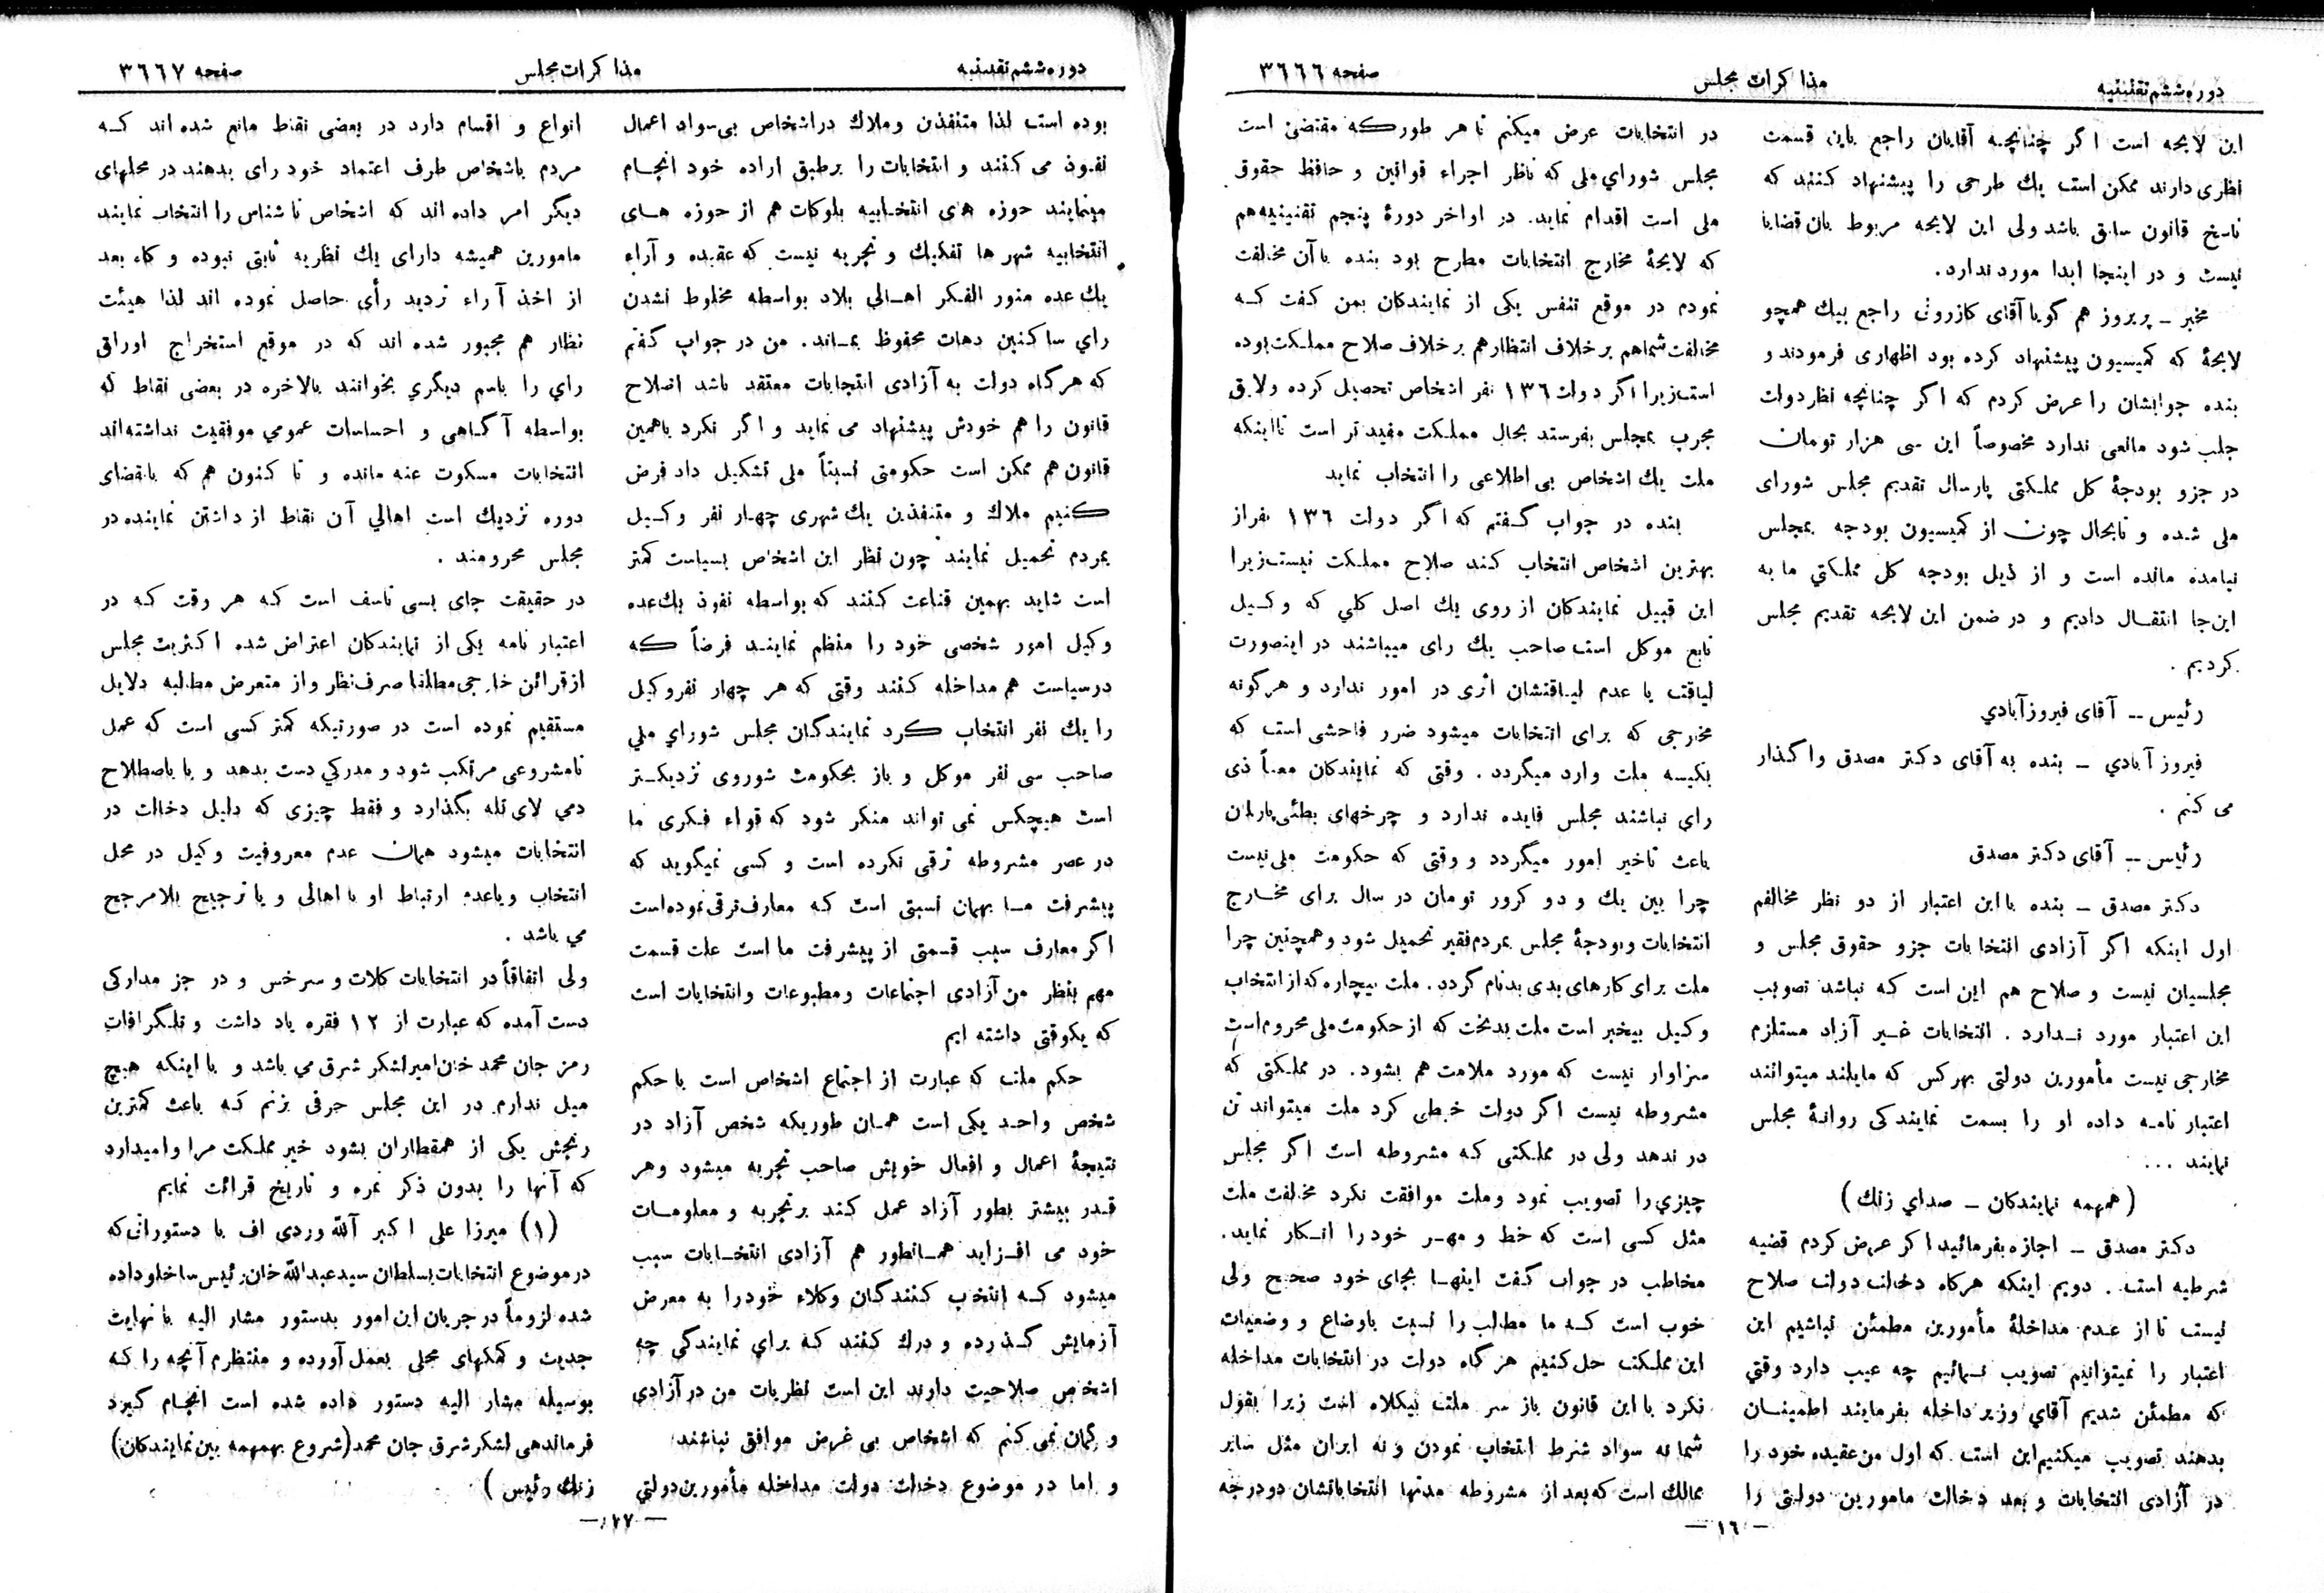 دوره ششم تقنینیه
مذاکرات مجلس
صفحه ۳۶۶۶
این لایحه است اگر چنانچه آقایان راجع باین قسمت
نظری دارند ممکن است یك طرحی را پیشنهاد کنند که
ناسخ قانون سابق باشد ولی این لایحه مربوط بان قضایا
نیست و در اینجا ابدا مورد ندارد.
مخبر ـ پریروز هم گویا آقای کازرونی راجع بیك همچو
لایحهٔ که کمیسیون پیشنهاد کرده بود اظهاری فرمودند و
بنده جوابشان را عرض کردم که اگر چنانچه نظر دولت
جلب شود مانعی ندارد مخصوصاً این سی هزار تومان
در جزو بودجهٔ کل مملکتی پارسال تقدیم مجلس شورای
ملی شده و تابحال چون از کمیسیون بودجه بمجلس
نیامده مانده است و از ذیل بودجه کل مملکتي ما به
این‌جا انتقال دادیم و در ضمن این لایحه تقدیم مجلس
کردیم .
رئیس -- آقای فیروزآبادي
فیروز آبادي ـ بنده به آقای دکتر مصدق واگذار
می کنم .
رئیس -- آقای دکتر مصدق
دکتر مصدق ـ بنده با این اعتبار از دو نظر مخالفم
اول اینکه اگر آزادی انتخابات جزو حقوق مجلس و
مجلسیان نیست و صلاح هم این است که نباشد تصویب
این اعتبار مورد ندارد . انتخابات غیر آزاد مستلزم
مخارجی نیست مأمورین دولتی بهرکس که مایلند میتوانند
اعتبار نامه داده او را بسمت نمایندکی روانهٔ مجلس
نمایند ...
( همهمه نمایندکان ـ صدای زنك )
دکتر مصدق ـ اجازه بفرمائید اکر عرض کردم قضیه
شرطیه است . دویم اینکه هرکاه دخالت دولت صلاح
نیست تا از عدم مداخلهٔ مأمورین مطمئن نباشیم این
اعتبار را نمیتوانیم تصویب نمائیم چه عیب دارد وقتی
که مطمئن شدیم آقاي وزیر داخله بفرمایند اطمینان
بدهند تصویب میکنیم این است که اول من عقیده خود را
در آزادی انتخابات و بعد دخالت مامورین دولتی را
در انتخابات عرض میکنم تا هر طورکه مقتضی است
مجلس شوراي ملی که ناظر اجراء قوانین و حافظ حقوق
ملی است اقدام نماید. در اواخر دورهٔ پنجم تقنینیه هم
که لایحهٔ مخارج انتخابات مطرح بود بنده با آن مخالفت
نمودم در موقع تنفس یکی از نمایندکان بمن کفت که
مخالفت شماهم بر خلاف انتظارهم بر خلاف صلاح مملکت بوده
است زیرا اکر دولت ۱۳۶ نفر اشخاص تحصیل کرده ولایق
مجرب بمجلس بفرستد بحال مملکت مفید تر است تااینکه
ملت یك اشخاص بی اطلاعی را انتخاب نماید
بنده در جواب گفتم که اگر دولت ۱۳۶ نفر از
بهترین اشخاص انتخاب کند صلاح مملکت نیست زیرا
این قبیل نمایندکان از روی یك اصل کلي که وکیل
تابع موکل است صاحب یك رای میباشند در اینصورت
لیاقت یا عدم لیاقتشان اثری در امور ندارد و هرگونه
مخارجی که برای انتخابات میشود ضرر فاحشی است که
بکیسه ملت وارد میگردد . وقتی که نمایندکان معناً ذی
راي نباشند مجلس فایده ندارد و چرخهای بطئی پارلمان
باعث تاخیر امور میگردد و وقتی که حکومت ملی نیست
چرا بین یك و دو کرور تومان در سال برای مخارج
انتخابات وبودجهٔ مجلس بمردم فقیر تحمیل شود وهمچنین چرا
ملت برای کارهای بدی بدنام گردد. ملت بیچاره که از انتخاب
وکیل بیخبر است ملت بدبخت که از حکومت ملی محروم است
سزاوار نیست که مورد ملامت هم بشود. در مملکتی که
مشروطه نیست اگر دولت خبطی کرد ملت میتواند تن
در ندهد ولی در مملکتی که مشروطه است اگر مجلس
چیزي را تصویب نمود وملت موافقت نکرد مخالفت ملت
مثل کسی است که خط و مهر خود را انکار نماید.
مخاطب در جواب گفت اینها بجای خود صحیح ولی
خوب است که ما مطالب را نسبت باوضاع و وضعیات
این مملکت حل کنیم هرگاه دولت در انتخابات مداخله
نکرد با این قانون باز سر ملت بیکلاه است زیرا بقول
شما نه سواد شرط انتخاب نمودن و نه ایران مثل سایر
ممالك است که بعد از مشروطه مدتها انتخاباتشان دو درجه
— ۱۶ —
دوره ششم تقنینیه
مذاکرات مجلس
صفحه ۳۶۶۷
بوده است لذا متنفذن وملاك در اشخاص بی‌سواد اعمال
نفوذ می کنند و انتخابات را برطبق اراده خود انجام
مینمایند حوزه های انتخابیه بلوکات هم از حوزه های
انتخابیه شهر ها تفکیك و تجربه نیست که عقیده و آراء
یك عده منور الفکر اهالي بلاد بواسطه مخلوط نشدن
راي ساکنین دهات محفوظ بماند. من در جواب گفتم
که هرگاه دولت به آزادی انتخابات معتقد باشد اصلاح
قانون را هم خودش پیشنهاد می نماید و اگر نکرد باهمین
قانون هم ممکن است حکومتی نسبتاً ملی تشکیل داد فرض
کنیم ملاك و متنفذین یك شهری چهار نفر وکیل
بمردم تحمیل نمایند چون نظر این اشخاص بسیاست کمتر
است شاید بهمین قناعت کنند که بواسطه نفوذ یك عده
وکیل امور شخصی خود را منظم نمایند فرضاً که
درسیاست هم مداخله کنند وقتی که هر چهار نفر وکیل
را یك نفر انتخاب کرد نمایندگان مجلس شوراي ملي
صاحب سی نفر موکل و باز بحکومت شوروی نزدیکتر
است هیچکس نمی تواند منکر شود که قواء فکری ما
در عصر مشروطه ترقی نکرده است و کسی نمیگوید که
پیشرفت ما بهمان نسبتی است که معارف ترقی نموده است
اکر معارف سبب قسمتی از پیشرفت ما است علت قسمت
مهم بنظر من آزادی اجتماعات ومطبوعات وانتخابات است
که یکوقتی داشته ایم
حکم ملت که عبارت از اجتماع اشخاص است با حکم
شخص واحد یکی است همان طوریکه شخص آزاد در
نتیجهٔ اعمال و افعال خویش صاحب تجربه میشود وهر
قدر بیشتر بطور آزاد عمل کند برتجربه و معلومات
خود می افزاید همانطور هم آزادی انتخابات سبب
میشود که انتخاب کنندگان وکلاء خودرا به معرض
آزمایش گذرده و درك کنند که براي نمایندگی چه
اشخص صلاحیت دارند این است نظریات من در آزادی
و گمان نمی کنم که اشخاص بی غرض موافق نباشند
و اما در موضوع دخالت دولت مداخله مأمورین دولتي
انواع و اقسام دارد در بعضی نقاط مانع شده اند که
مردم باشخاص طرف اعتماد خود رای بدهند در محلهای
دیگر امر داده اند که اشخاص ناشناس را انتخاب نمایند
مامورین همیشه دارای یك نظریه ثابتی نبوده و گاه بعد
از اخذ آراء تردید رأی حاصل نموده اند لذا هیئت
نظار هم مجبور شده اند که در موقع استخراج اوراق
راي را باسم دیگري بخوانند بالاخره در بعضی نقاط که
بواسطه آگاهی و احساسات عمومي موفقیت نداشته‌اند
انتخابات مسکوت عنه مانده و تا کنون هم که بانقضای
دوره نزدیك است اهالي آن نقاط از داشتن نماینده در
مجلس محرومند .
در حقیقت جای بسی تاسف است که هر وقت که در
اعتبار نامه یکی از نمایندکان اعتراض شده اکثریت مجلس
ازقرائن خارجی مطلقا صرف نظر و از متعرض مطالبه دلایل
مستقیم نموده است در صورتیکه کمتر کسی است که عمل
نامشروعی مرتکب شود و مدرکي دست بدهد و یا باصطلاح
دمي لای تله بگذارد و فقط چیزی که دلیل دخالت در
انتخابات میشود همان عدم معروفیت وکیل در محل
انتخاب ویاعدم ارتباط او با اهالی و یا ترجیح بلا مرجح
می باشد .
ولی اتفاقاً در انتخابات کلات و سرخس و در جز مدارکی
دست آمده که عبارت از ۱۲ فقره یاد داشت و تلگرافات
رمز جان محمد خان امیر لشکر شرق می باشد و با اینکه هیچ
میل ندارم در این مجلس حرفی بزنم که باعث کمترین
رنجش یکی از همقطاران بشود خیر مملکت مرا وامیدارد
که آنها را بدون ذکر نمره و تاریخ قرائت نمایم
(۱) میرزا علی اکبر آلله وردی اف با دستورانی که
در موضوع انتخابات بسلطان سید عبدالله خان رئیس ساخلو داده
شده لزوماً در جریان این امور بدستور مشار الیه با نهایت
جدیت و کمکهای محلی بعمل آورده و منتظرم آنچه را که
بوسیله مشار الیه دستور داده شده است انجام گیرد
فرماندهی لشکر شرق جان محمد (شروع بهمهمه بین نمایندکان)
زنك رئیس )
— ۱۷ —